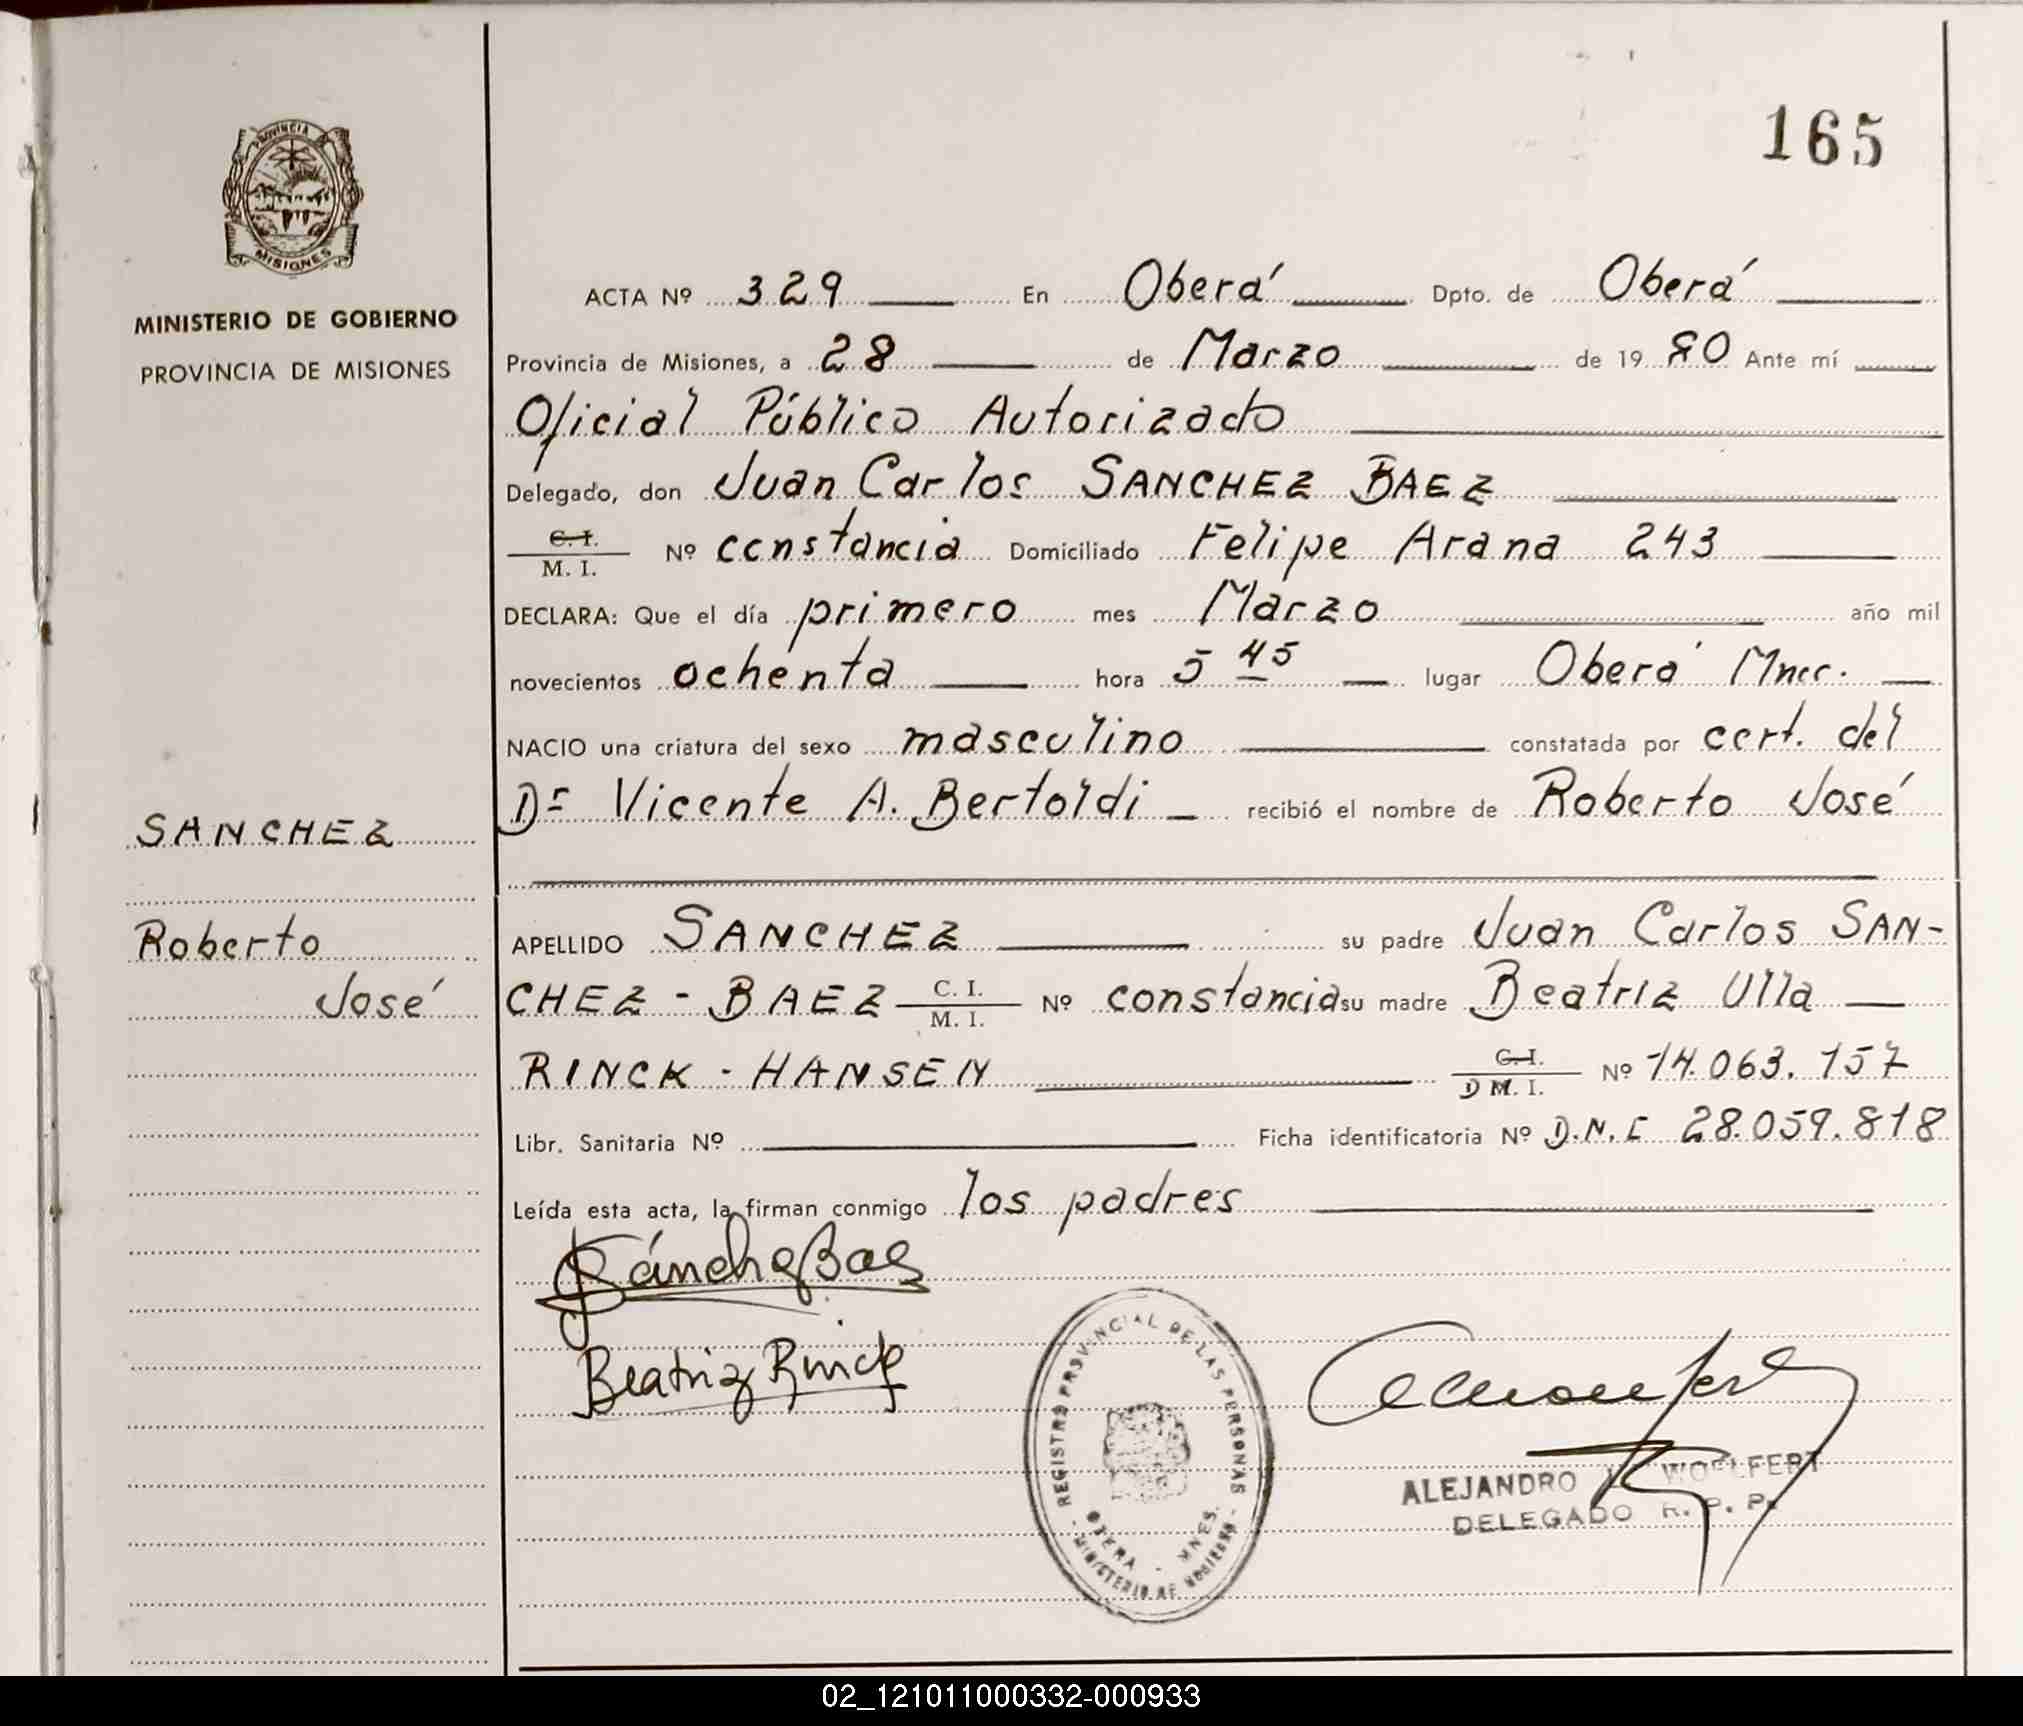 165
PROVINCIA DE
MISIONES
MINISTERIO DE GOBIERNO
PROVINCIA DE MISIONES
ACTA Nº 329 En Oberá Dpto. de Oberá
Provincia de Misiones, a 28 de Marzo de 19 80 Ante mí
Oficial Público Autorizado
Delegado, don Juan Carlos SANCHEZ BAEZ
C. I.
M. I. Nº constancia Domiciliado Felipe Arana 243
DECLARA: Que el día primero mes Marzo año mil
novecientos ochenta hora 5 45 lugar Oberá Mnes.
NACIO una criatura del sexo masculino constatada por cert. del
Dr Vicente A. Bertoldi recibió el nombre de Roberto José
SANCHEZ
Roberto
José
APELLIDO SANCHEZ su padre Juan Carlos SAN-
CHEZ - BAEZ C. I. M. I. Nº constancia su madre Beatriz Ulla
RINCK - HANSEN C. I. D M. I. Nº 14.063.157
Libr. Sanitaria Nº Ficha identificatoria Nº D.N.I 28.059.818
Leída esta acta, la firman conmigo los padres
SánchezBaez
Beatriz Rinck
REGISTRO PROVINCIAL DE LAS PERSONAS
OBERA - MNES.
MINISTERIO DE GOBIERNO
ALEJANDRO WOELFERT
DELEGADO R. P. P.
02_121011000332-000933